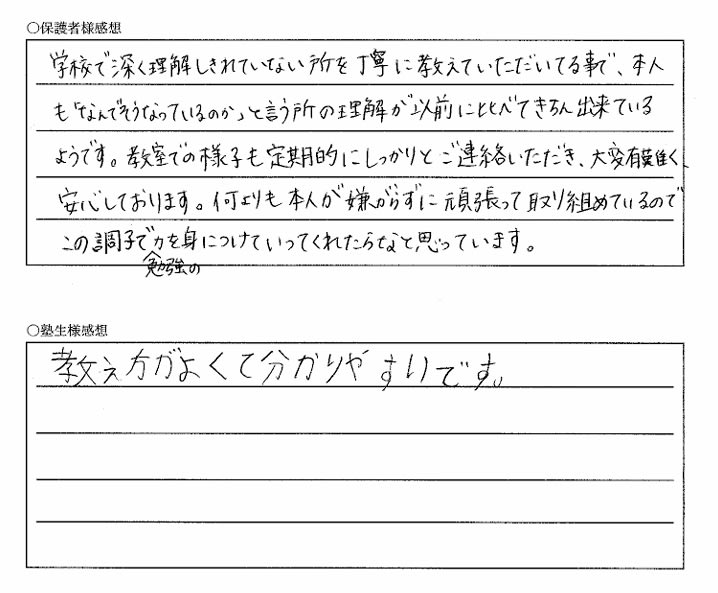 ○保護者様感想
学校で深く理解しきれていない所を丁寧に教えていただいてる事で、本人
も「なんでそうなっているのか」と言う所の理解が以前に比べてきちん出来ている
ようです。教室での様子も定期的にしっかりとご連絡いただき、大変有難く、
安心しております。何よりも本人が嫌がらずに頑張って取り組めているので
この調子で力を身につけていってくれたらなと思っています。
勉強の
○塾生様感想
教え方がよくて分かりやすいです。